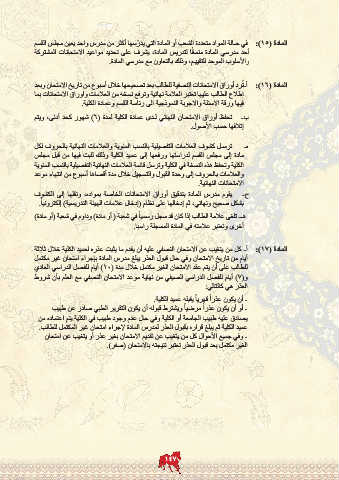 المادة (١٥): في حالة المواد متعددة الشعب أو المادة التي يدرّسها أكثر من مدرس واحد يعين مجلس القسم
أحد مدرسي المادة منسقاً لتدريس المادة، يشرف على تحديد مواعيد الامتحانات المشتركة
والأسلوب الموحد للتقييم، وذلك بالتعاون مع مدرسي المادة.
المادة (١٦): أ. تُفرد أوراق الامتحانات النصفية للطالب بعد تصحيحها خلال أسبوع من تاريخ الامتحان وبعد
اطلاع الطالب عليها تعتبر العلامة نهائية وترفع نسخة من العلامات وأوراق الامتحانات بما
فيها ورقة الأسئلة والاجوبة النموذجية الى رئاسة القسم وعمادة الكلية.
ب. تحفظ أوراق الامتحان النهائي لدى عمادة الكلية لمدة (٦) شهور كحد أدنى، ويتم
إتلافها حسب الأصول.
ترسل كشوف العلامات التفصيلية بالنسب المئوية والعلامات النهائية بالحروف لكل
مادة إلى مجلس القسم لدراستها ورفعها إلى عميد الكلية وذلك للبت فيها من قبل مجلس
الكلية وتحفظ هذه النسخة في الكلية وترسل قائمة العلامات النهائية التفصيلية بالنسب المئوية
والعلامات بالحروف إلى وحدة القبول والتسجيل خلال مدة أقصاها أسبوع من انتهاء موعد
الامتحانات النهائية.
يقوم مدرس المادة بتدقيق أوراق الامتحانات الخاصة بمواده، ونقلها إلى الكشوف
بشكل صحيح ونهائي، ثم إدخالها على نظام (إدخال علامات الهيئة التدريسية) إلكترونياً.
هـ. تلغى علامة الطالب إذا كان قد سجل رسمياً في شعبة (أو مادة) وداوم في شعبة (أو مادة)
أخرى وتعتبر علامته في المادة المسجلة راسبا.
المادة (١٧): أ. كل من يتغيب عن الامتحان النصفي عليه أن يقدم ما يثبت عذره لعميد الكلية خلال ثلاثة
أيام من تاريخ الامتحان وفي حال قبول العذر يبلغ مدرس المادة بإجراء امتحان غير مكتمل
للطالب على أن يتم عقد الامتحان الغير مكتمل خلال مدة (١٠) أيام للفصل الدراسي العادي
و(٧) أيام للفصل الدراسي الصيفي من نهاية موعد الامتحان النصفي مع العلم بأن شروط
العذر هي كالتالي:
- أن يكون عذراً قهرياً يقبله عميد الكلية.
- أو أن يكون عذراً مرضياً ويشترط قبوله أن يكون التقرير الطبي صادر عن طبيب
يصادق عليه طبيب الجامعة أو الكلية وفي حال عدم وجود طبيب في الكلية يتم اعتماده من
عميد الكلية ثم يبلغ قراره بقبول العذر لمدرس المادة لإجراء امتحان غير المكتمل للطالب.
- وفي جميع الأحوال كل من يتغيب عن تقديم الامتحان بغير عذر أو يتغيب عن امتحان
الغير مكتمل بعد قبول العذر تعتبر نتيجته بالامتحان (صفر).
١٤٧